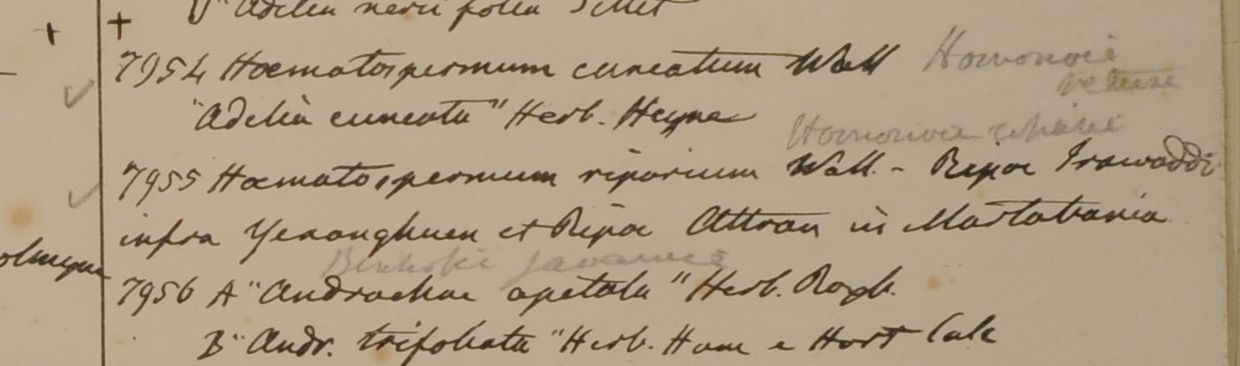 "Adelia nerii folia Sillet
7954 Hæmatospermum cuneatum Wall Homonoia
retusa
"Adelia cuneata" Herb. Heyne
Homonoia riparia
7955 Hæmatospermum riparium Wall. - Ripæ Irawaddi
infra Yenanghuen et Ripæ Attran in Martabania
Bischofia javanica
7956 A "Andrachne apetala" Herb. Roxb.
B "Andr. trifoliata" Herb. Ham e Hort Calc